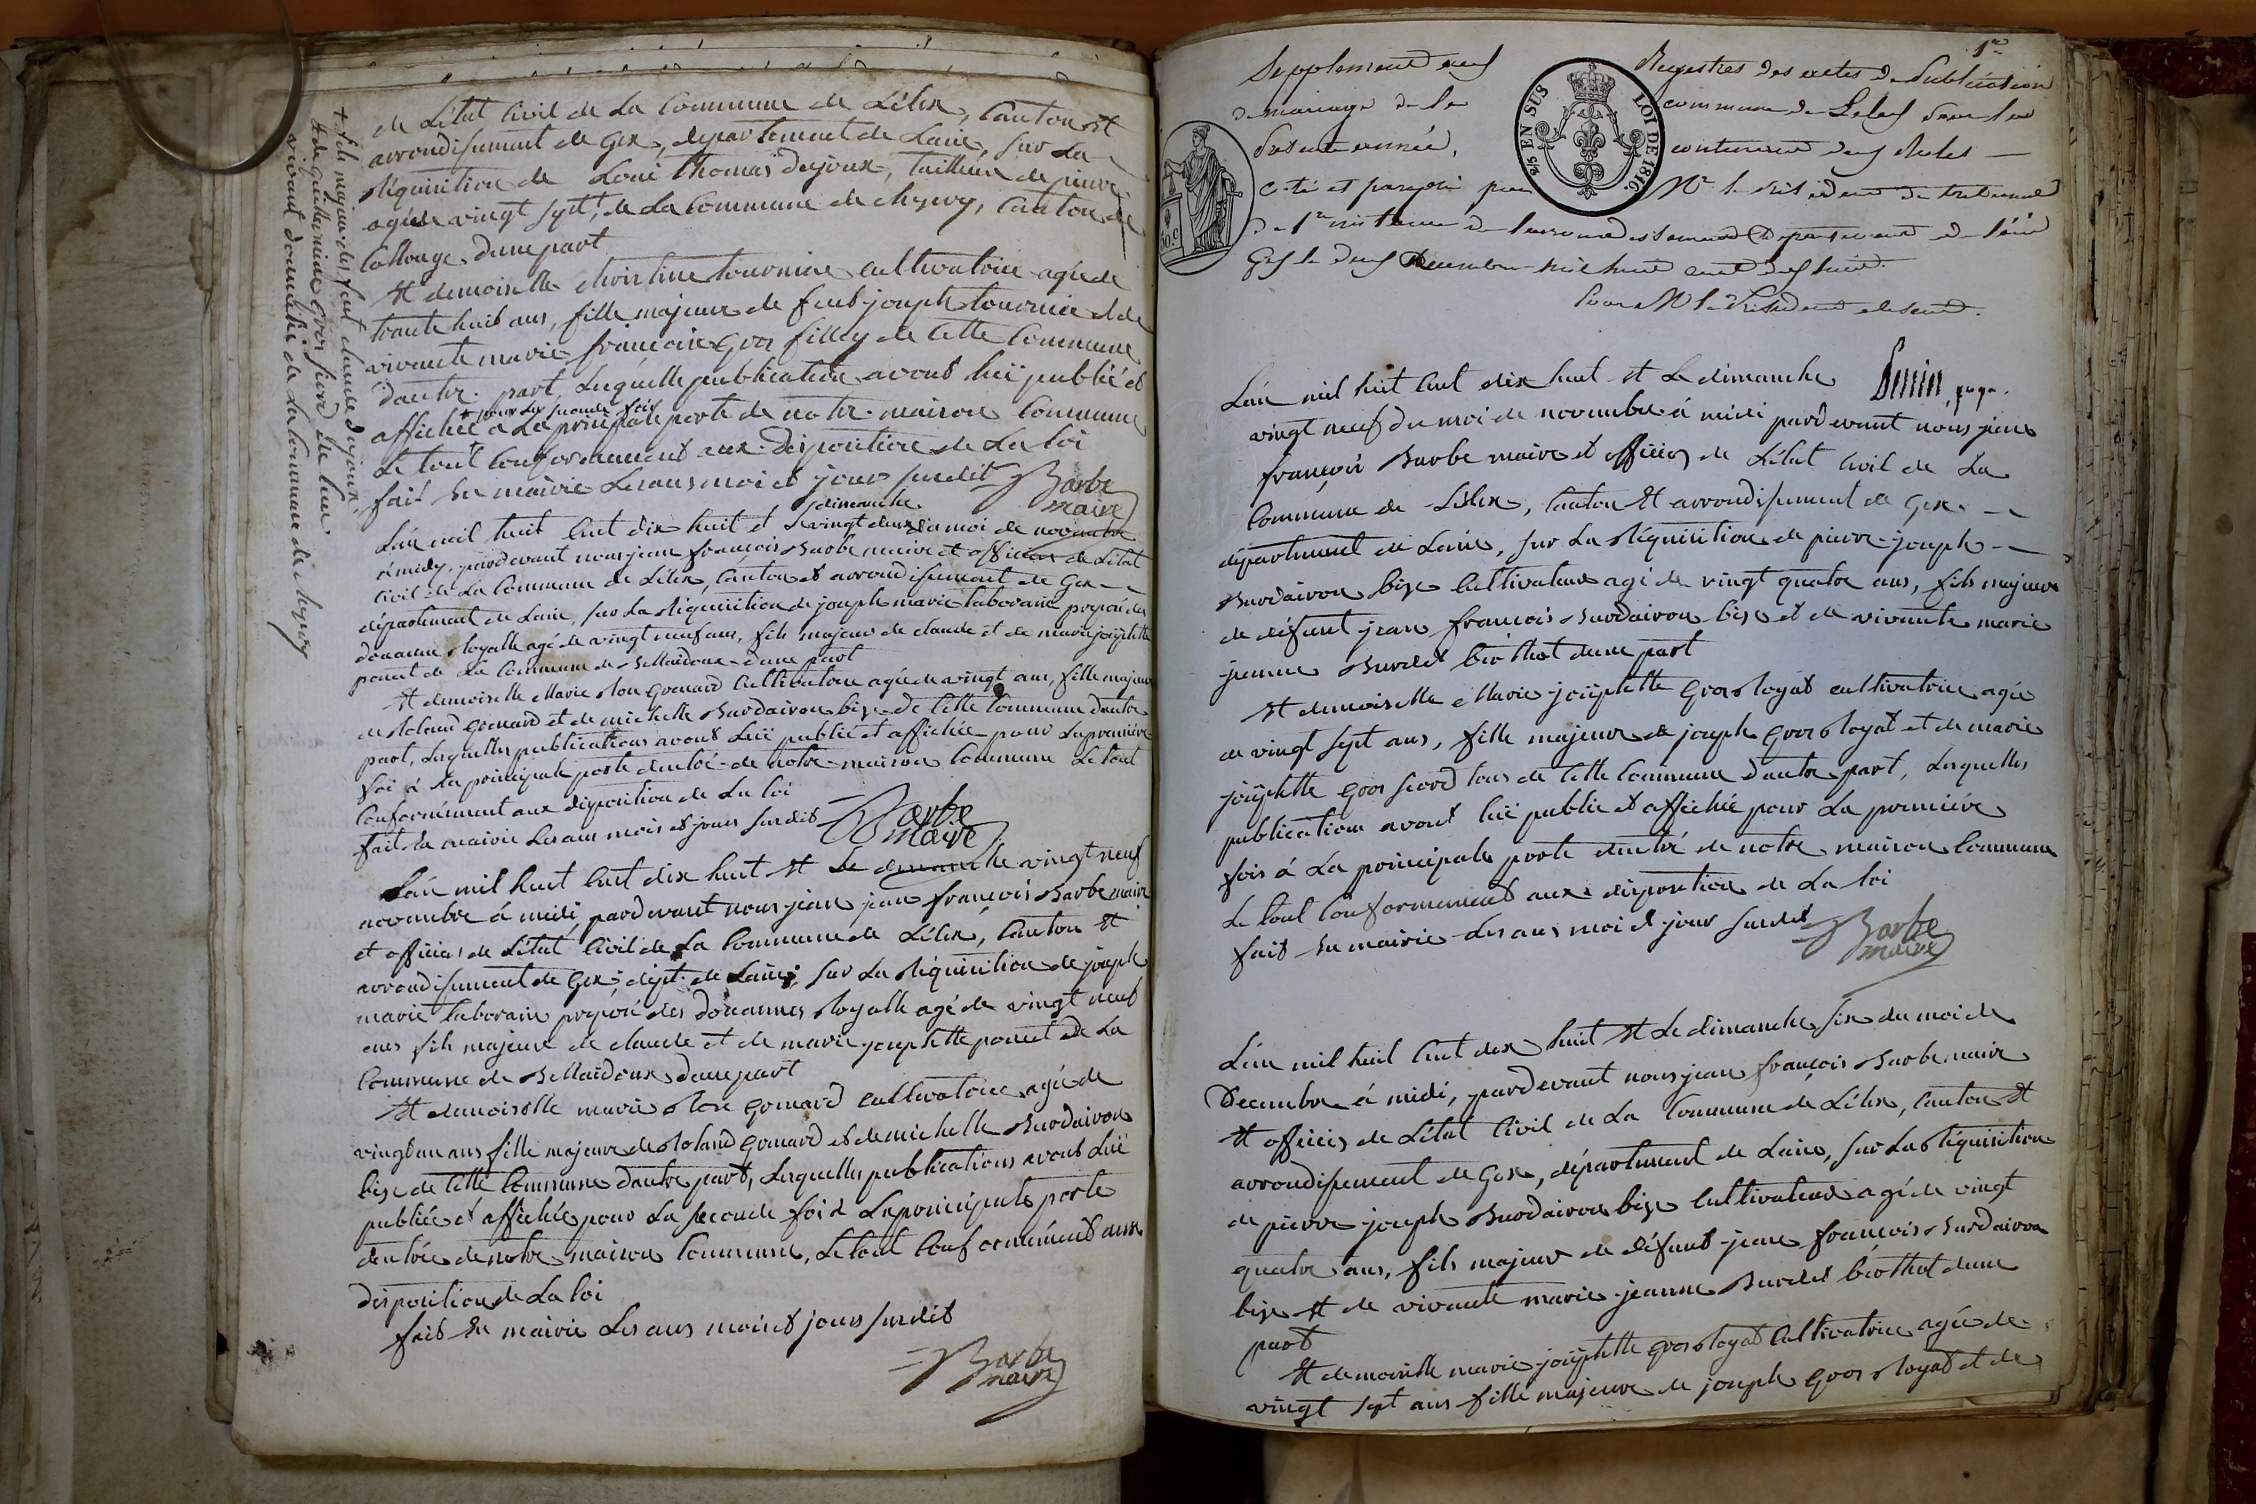 de L'état Civil de La Commune de Lélex, Canton et
arrondisement de Gex, département de Lain, sur La
Réquisition de Loui thomas dejoux, tailleur de pierre
agé de vingt sept, de La Commune de chezery, Canton de
Collonge, dune part
Et demoiselle christine tournier cultivatrice agée de
trante huit ans, fille majeure de feut joseph tournier et de
vivante marie françoise gros filley de Cette Commune
dautre part, Laquelle publication avont lüe publié et
affichée pour La seconde fois a La principale porte de notre maison Commune
Le tout Conformement aux disposition de La loi
fait En mairie Les ans moi et jour susdit
Barbe
maire
+ fils majeur de feut claude dejoux,
et de Guillermine gros fiord de leur
vivant domicilié de La Commune de chezery
L'an mil huit Cent dix huit et dimanche vingt deux du moi de novembre
à midy, pardevant nous jean françois Barbe maire et officier de L'état
Civil de La Commune de Lélex, Canton et arrondisement de Gex
département de Lain, sur La Réquisition de joseph marie Laboraie préposé des
douanne Royalle agé de vingt neuf ans, fils majeur de claude et de marie josephtte
ponat de La Commune de Bellaidoux dune part
Et demoiselle Marie Rose Gronard Cultivatrice agée de vingt ans, fille majeure
de Roland Gronard et de michelle Burdairon bize de Cette Commune dautre
part, Lesquelles publications avont Luë publié et affichée pour La premiere
foi à La principale porte dentré de notre maison Commune Le tout
Conformément aux disposition de La loi
fait En mairie Les ans mois et jours susdit
Barbe
maire
L'an mil huit Cent dix huit et Le dimanche vingt neuf
novembre à midi, pardevant nous jean jean françois Barbe maire
et officier de L'état Civil de La Commune de Lélex, Canton et
arrondisement de Gex, dépt. de Lain, sur La Réquisition de joseph
marie Laboraie préposé des douannes Royalle agé de vingt neuf
ans fils majeur de claude et de marie josephtte ponat de La
Commune de Bellaidoux dune part
Et demoiselle marie Rose Gronard cultivatrice agée de
vingt un ans fille majeure de Roland Gronard et de michelle Burdairon
bize de Cette Commune dautre part, Lesquelles publications avont Luë
publiée et affichée pour La seconde foi à La principale porte
dentrée de notre maison Commune, Le tout Conformément aux
disposition de La loi
fait En mairie Les ans mois et jours susdit
Barbe
maire
1re
Supplement aux Registres des actes de Publication
de mariage de la commune de Lelex pour la
Présente année, contenant deux Rôles
Coté et paraphé par Mr. le Président du tribunal
de 1re instance de l'arrondissement Département de l'ain
Gex le deux decembre mil huit cent dix huit.
Pour Mr le Président absent.
50.C
2/5 EN SUS LOI DE 1816.
L'an mil huit Cent dix huit et Le dimanche
vingt neuf du moi de novembre à midi pardevant nous jean
françois Barbe maire et officier de L'état Civil de La
Commune de Lélex, Canton et arrondisement de Gex
département de Lain, sur La Réquisition de pierre joseph
Burdairon bize Cultivateur agé de vingt quatre ans, fils majeur
de défunt jean françois Burdairon bize et de vivante marie
jeanne Burdet biothot dune part
Et demoiselle Marie josephtte gros Royat cultivatrice agée
de vingt sept ans, fille majeure de joseph gros Royat et de marie
josephtte gros fiord tous de Cette Commune dautre part, Lesquelles
publication avont lüe publié et affichée pour La premiére
fois à La principale porte dentré de notre maison Commune
Le tout Conformement aux disposition de La loi
fait En mairie Les ans moi et jour susdit
Barbe
maire
L'an mil huit Cent dix huit et Le dimanche six du moi de
Decembre à midi, pardevant nous jean françois Barbe maire
et officier de L'état Civil de La Commune de Lélex, Canton et
arrondisement de Gex, département de Lain, sur La Réquisition
de pierre joseph Burdairon bize Cultivateur agé de vingt
quatre ans, fils majeur de défunt jean françois Burdairon
bize et de vivante marie jeanne Burdet biothot dune
part
Et demoiselle marie josephtte gros Royat Cultivatrice agée de
vingt sept ans fille majeure de joseph gros Royat et de